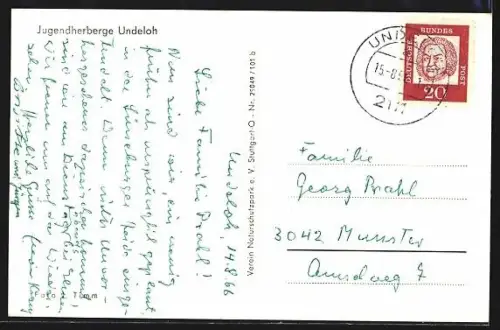 Jugendherberge Undeloh
Undeloh, 14.8.66
Liebe Familie Prahl!
Nun sind wir, ein wenig
früher als ursprünglich geplant
in der Lüneburger Heide einge-
trudelt. Wenn nichts Unvor-
hergesehenes dazwischenkommt
sind wir am Dienstag bei Ihnen.
Wir freuen uns auf das Wieder-
sehen. Herzliche Grüße
Verein Naturschutzpark e. V. Stuttgart O - Nr. 25049/101 b
UND
15.-8.6
2111
DEUTSCHE BUNDES POST
20
Familie
Georg Prahl
3042 Munster